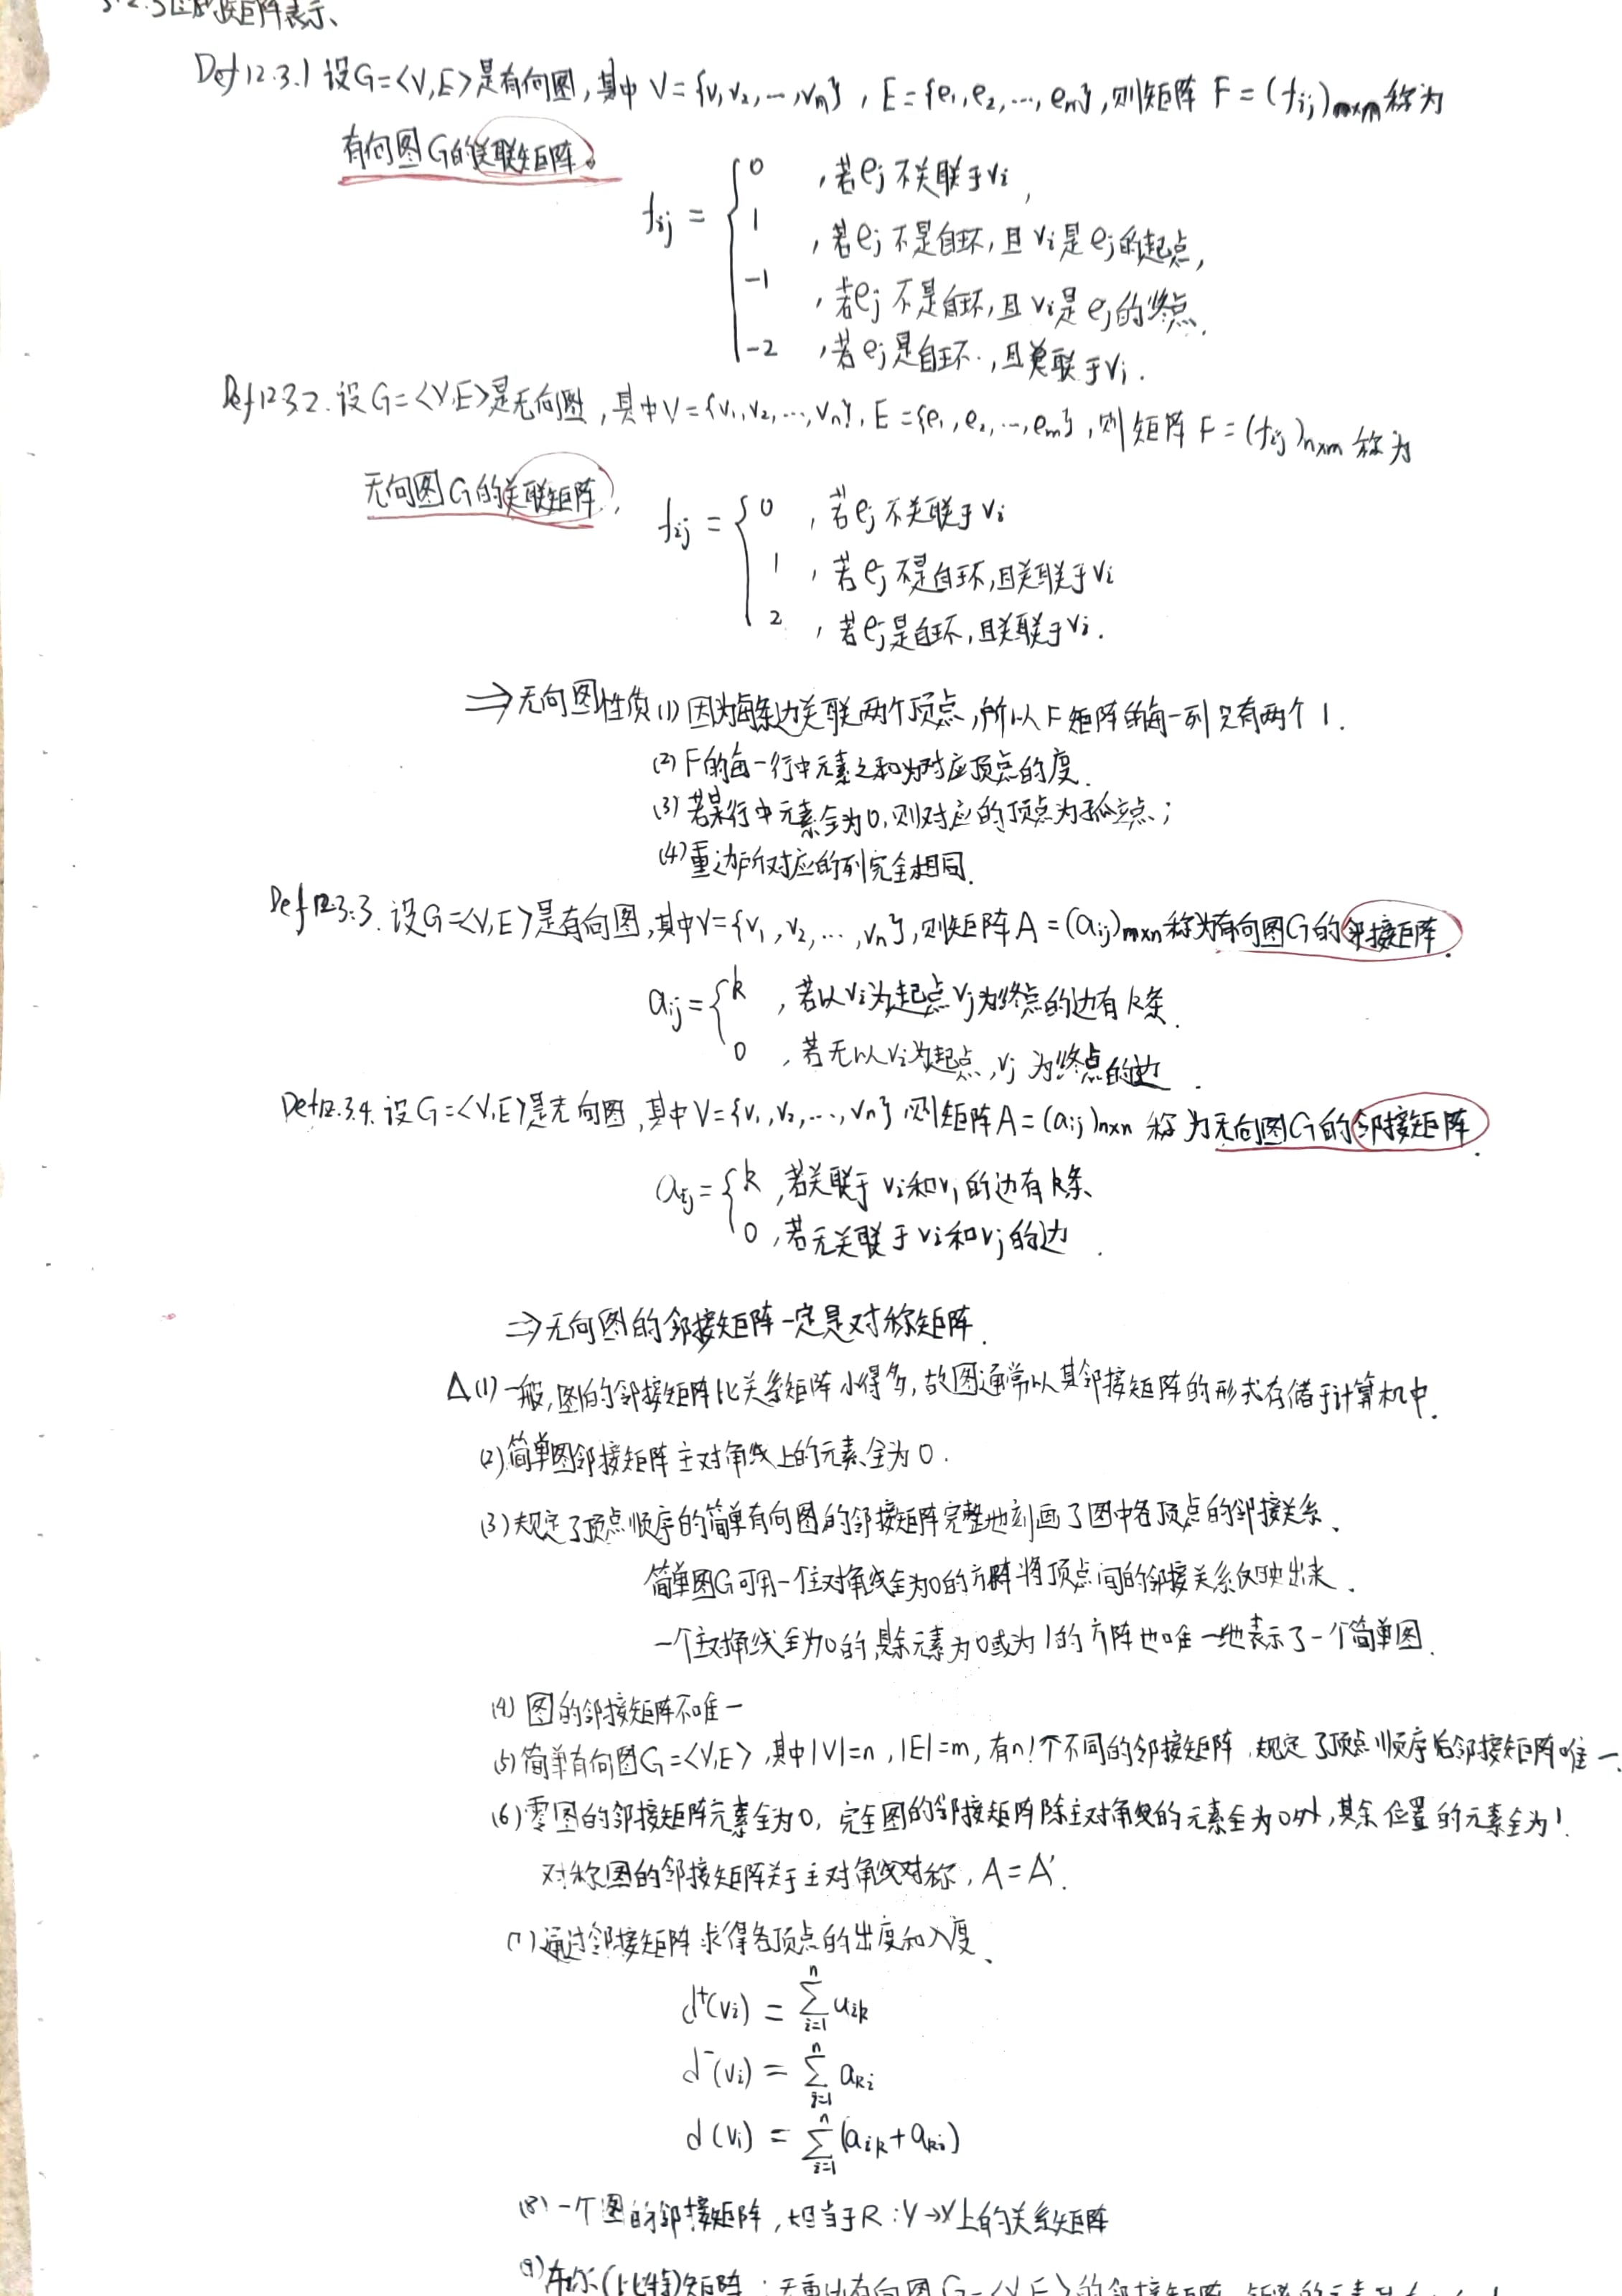 矩阵表示、
Def12.3.1 设G=<V,E>是有向图,其中 V={v₁,v₂,…,vn}, E={e₁,e₂,…,em},则矩阵 F=(fij)n×m称为
有向图G的关联矩阵。
fij = { 0 ,若ej不关联于vi,
1 ,若ej不是自环,且vi是ej的起点,
-1 ,若ej不是自环,且vi是ej的终点.
-2 ,若ej是自环.,且关联于vi.
Def12.3.2.设G=<V,E>是无向图,其中V={v₁,v₂,…,vn},E={e₁,e₂,…,em},则矩阵F=(fij)n×m称为
无向图G的关联矩阵.
fij = { 0 ,若ej不关联于vi
1 ,若ej不是自环,且关联于vi
2 ,若ej是自环,且关联于vi.
⇒无向图性质(1)因为每条边关联两个顶点,所以F矩阵的每一列只有两个1.
(2)F的每一行中元素之和为对应顶点的度.
(3)若某行中元素全为0,则对应的顶点为孤立点;
(4)重边所对应的列完全相同.
Def12.3.3.设G=<V,E>是有向图,其中V={v₁,v₂,…,vn},则矩阵A=(aij)m×n称为有向图G的邻接矩阵.
aij={ k ,若以vi为起点vj为终点的边有k条.
0 ,若无以vi为起点,vj为终点的边.
Def12.3.4.设G=<V,E>是无向图,其中V={v₁,v₂,…,vn},则矩阵A=(aij)n×n称为无向图G的邻接矩阵.
aij={ k ,若关联于vi和vj的边有k条、
0 ,若无关联于vi和vj的边.
⇒无向图的邻接矩阵一定是对称矩阵.
Δ(1)一般,图的邻接矩阵比关系矩阵小得多,故图通常以其邻接矩阵的形式存储于计算机中.
(2)简单图邻接矩阵主对角线上的元素全为0.
(3)规定了顶点顺序的简单有向图的邻接矩阵完整地刻画了图中各顶点的邻接关系、
简单图G可用一个主对角线全为0的方阵将顶点间的邻接关系反映出来.
一个主对角线全为0的,其余元素为0或为1的方阵也唯一地表示了一个简单图.
(4)图的邻接矩阵不唯一
(5)简单有向图G=<V,E>,其中|V|=n,|E|=m,有n!个不同的邻接矩阵,规定了顶点顺序后邻接矩阵唯一.
(6)零图的邻接矩阵元素全为0,完全图的邻接矩阵除主对角线的元素全为0外,其余位置的元素全为1.
对称图的邻接矩阵关于主对角线对称,A=A'.
(7)通过邻接矩阵求得各顶点的出度和入度、
d⁺(vi) = Σⁿᵢ₌₁ aik
d⁻(vi) = Σⁿᵢ₌₁ aki
d(vi) = Σⁿᵢ₌₁ (aik+aki)
(8)一个图的邻接矩阵,相当于R:V→V上的关系矩阵
(9)布尔(比特)矩阵:无重边有向图G=<V,E>的邻接矩阵